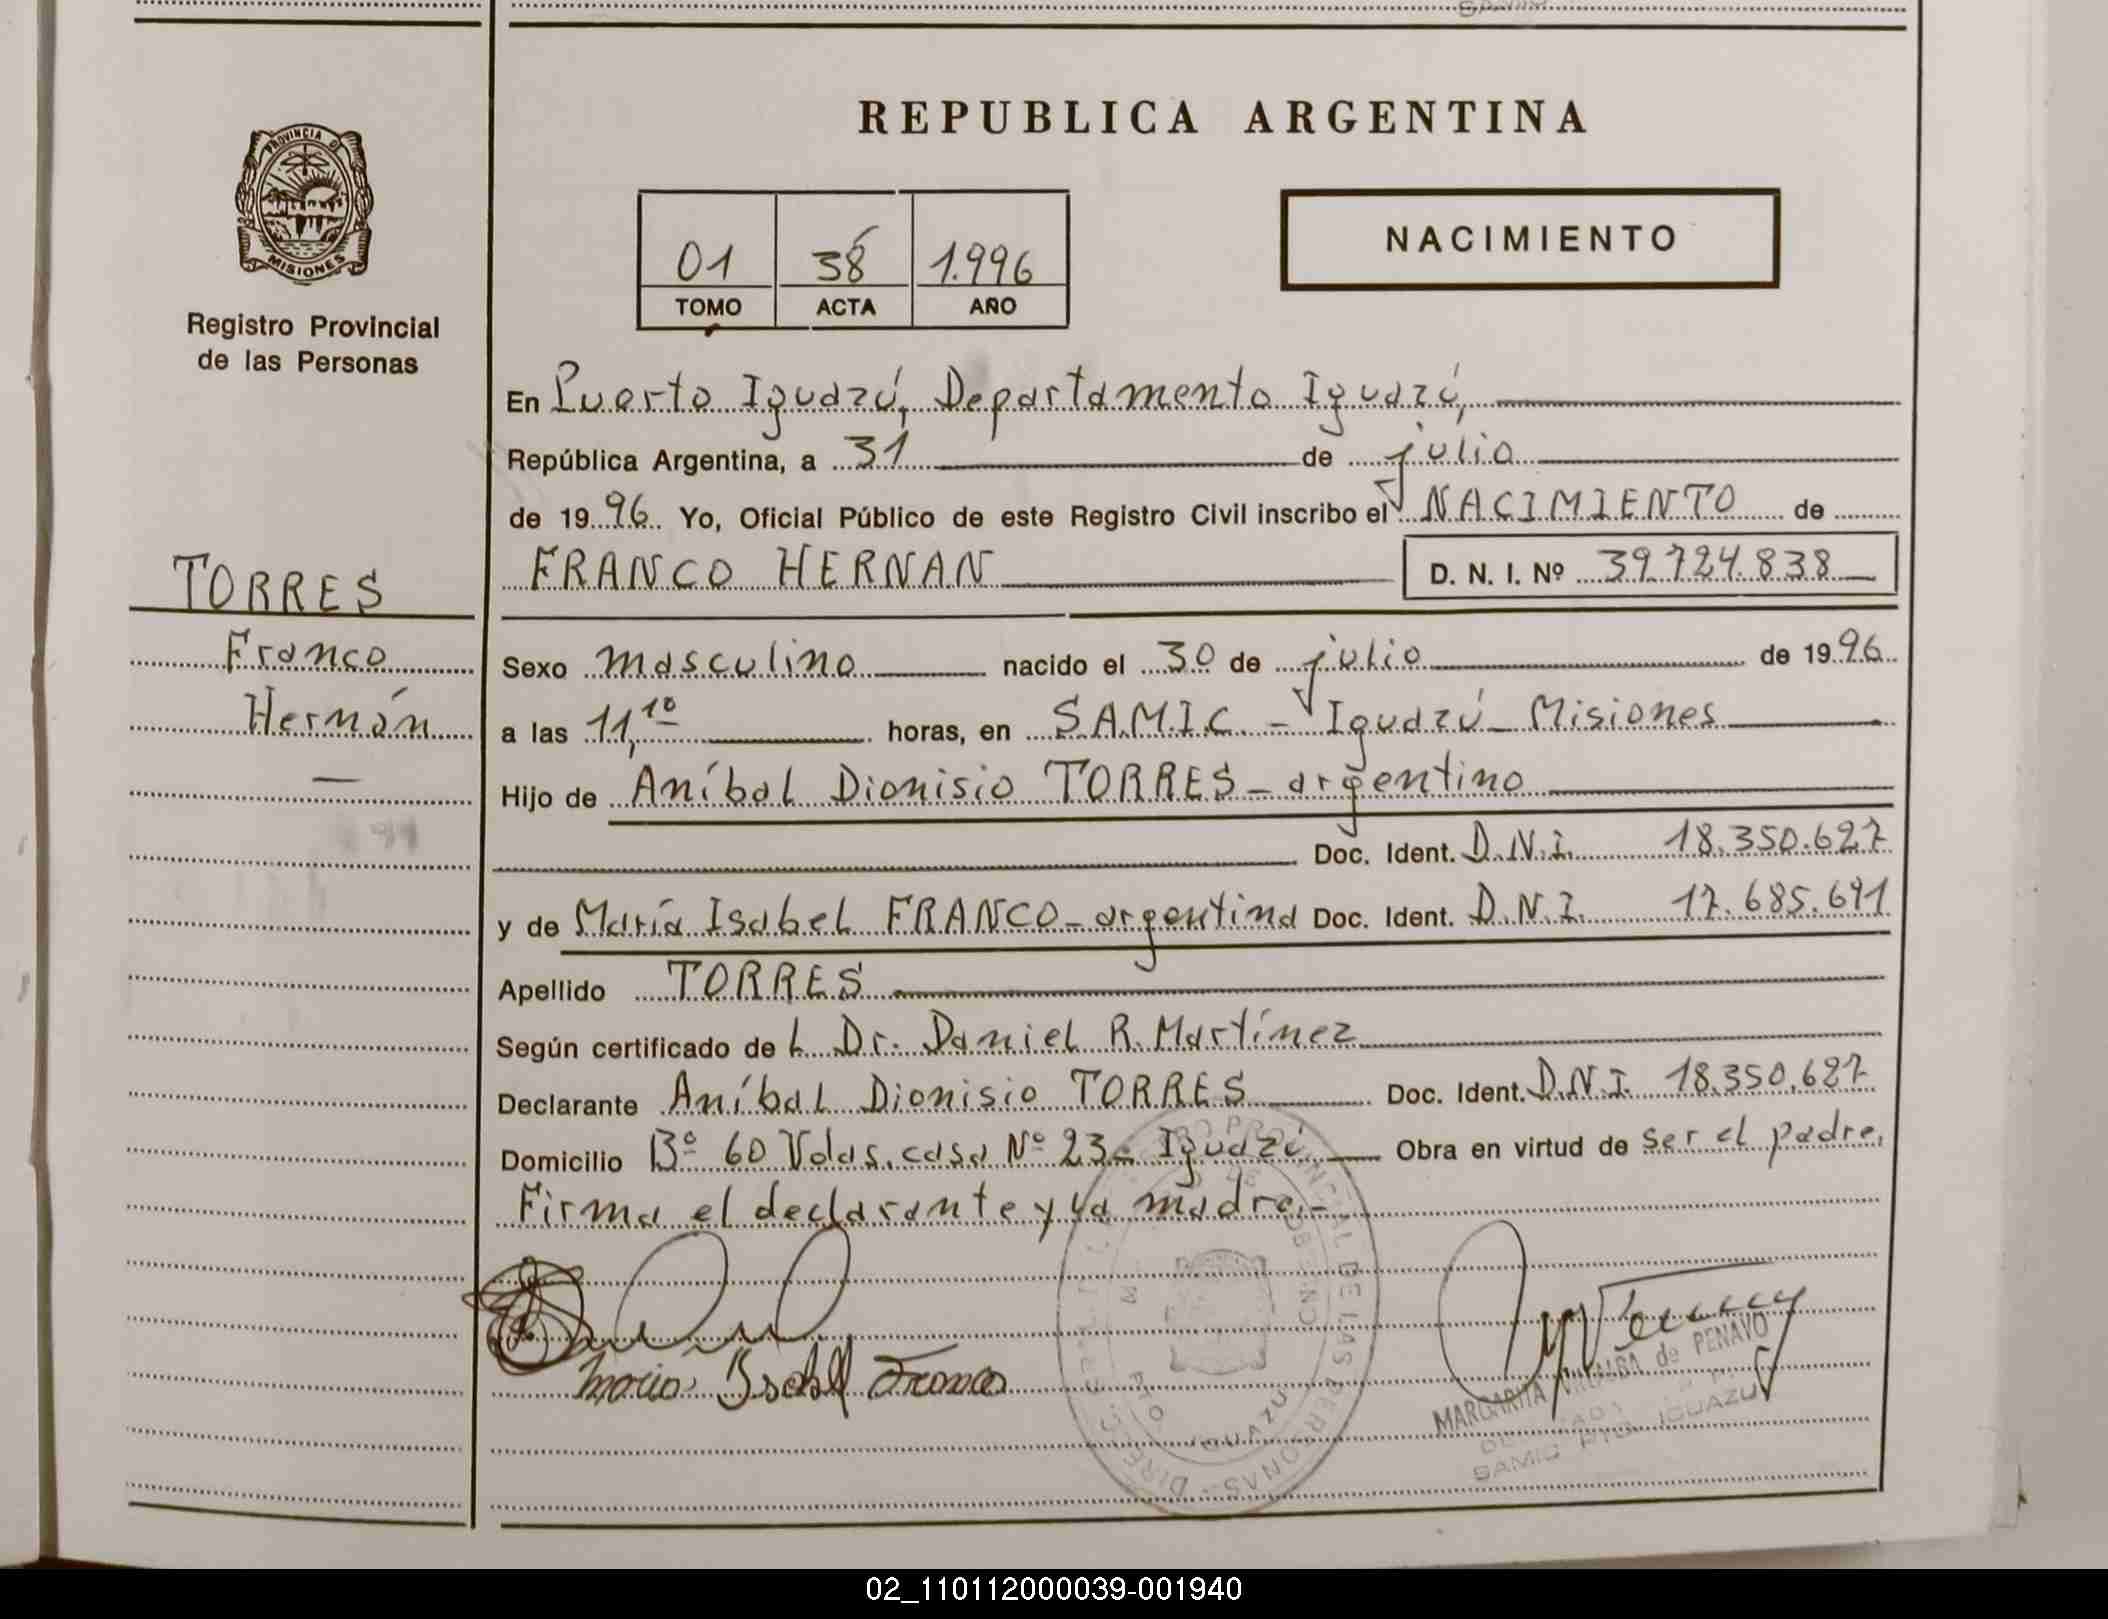 REPUBLICA ARGENTINA
PROVINCIA DE
MISIONES
Registro Provincial
de las Personas
01 38 1.996
TOMO ACTA AÑO
NACIMIENTO
En Puerto Iguazú, Departamento Iguazú,
República Argentina, a 31 de julio
de 1996. Yo, Oficial Público de este Registro Civil inscribo el NACIMIENTO de
FRANCO HERNAN D. N. I. Nº 39.724.838
TORRES
Franco
Hernán
Sexo masculino nacido el 30 de julio de 1996
a las 11,10 horas, en S.A.M.I.C. - Iguazú - Misiones
Hijo de Aníbal Dionisio TORRES - argentino
Doc. Ident. D.N.I. 18.350.627
y de María Isabel FRANCO - argentina Doc. Ident. D.N.I. 17.685.691
Apellido TORRES
Según certificado de L Dr. Daniel R. Martínez
Declarante Aníbal Dionisio TORRES Doc. Ident. D.N.I. 18.350.627
Domicilio Bº 60 Vdas. casa Nº 23 - Iguazú Obra en virtud de ser el padre.
Firma el declarante y la madre.-
María Isabel Franco
MARGARITA VILLALBA de PENAYO
SAMIC PTO. IGUAZU
PROVINCIAL DE LAS PERSONAS
PTO IGUAZU
02_110112000039-001940